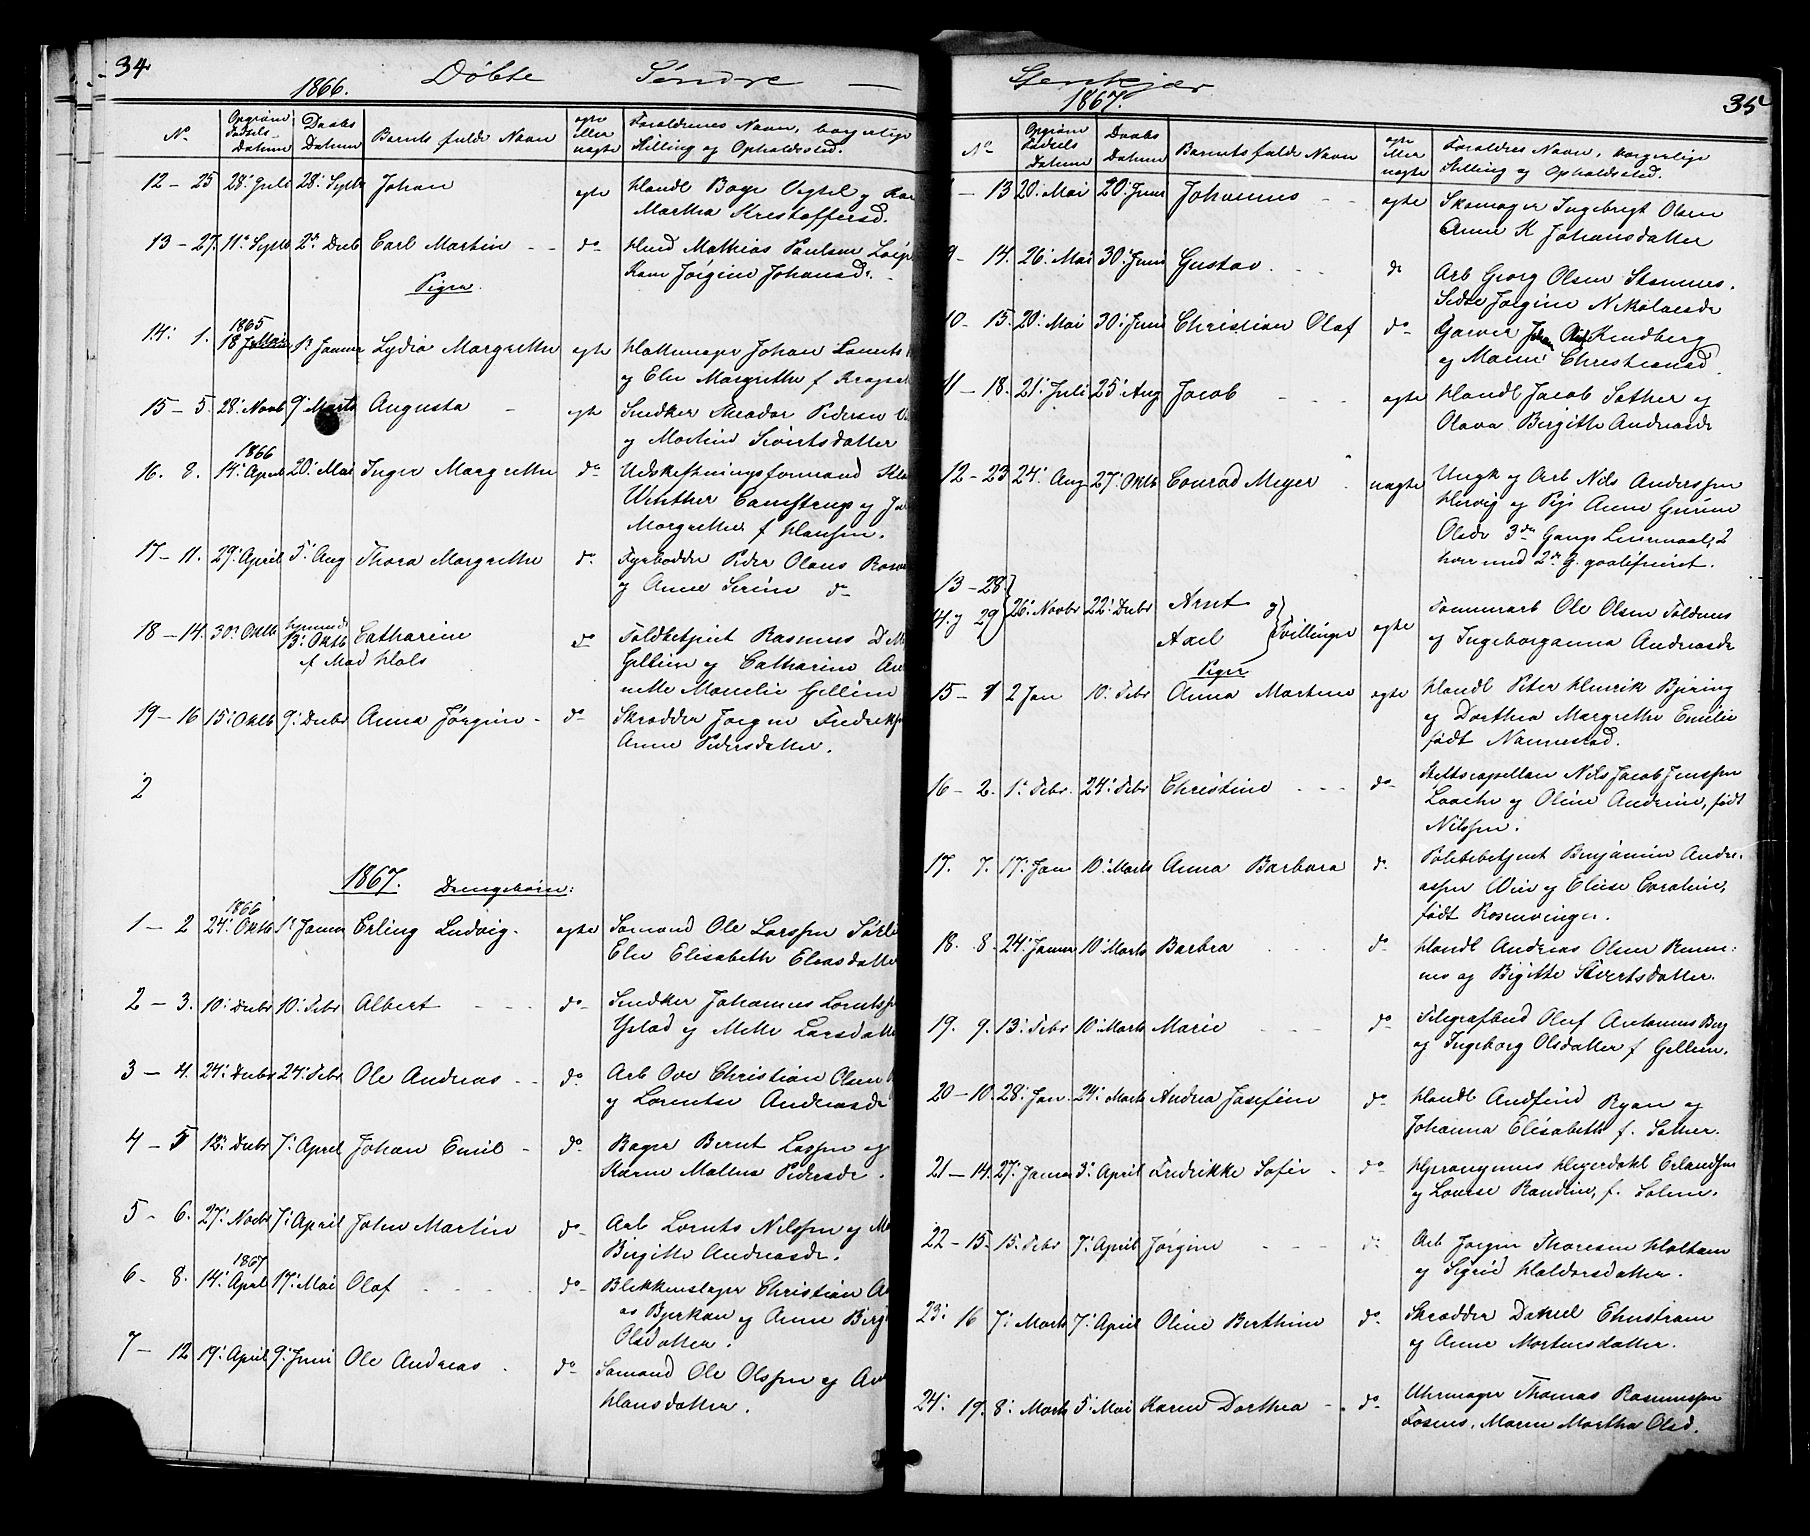 34
1866. Döbte Söndre —
No
Opgivne Fødsels Datum
Daabs Datum
Barnets fulde Navn
ægte eller uægte
Forældrenes Navn, borgerlige
Stilling og Opholdssted.
12 - 25 28' Juli 28' Septb Johan ægte Handl Boye Vigtel og
Martha Kristoffersd.
13 - 27. 11' Septb 2' Decb Carl Martin - - do Huusd Mathias Paulsen
Karen Jörgine Johansd.
Piger.
1865
14: 1. 18 1' Januar Lydia Margrethe ægte Hattemager Johan Lorents
og Else Margrethe f
15 - 5. 28' Novb 9' Marts Augusta - ægte Snedker Theodor Pedersen
og Martine Sivertsdatter
1866
16. 8. 14' April 20' Mai Inger Margrethe do Udskiftningsformand
Winther og
Margrethe f Hansen.
17 - 11. 29' April 5' Aug Thora Margrethe do Fyrbødder Peder Olaus
og Anne Serine do
18 - 14. 30' Oktb 13' Oktb Catharine do Toldbetjent Rasmus D
af Mad Hals Gellein og Catharine
Gellein
19 - 16 15' Oktb 9' Decbr Anna Jørgine - do Skrædder Jørgen Fredriks
Anne Pedersdatter.
2
1867. Drengebörn:
1866
1 - 2 24' Oktb 1' Januar Erling Ludvig - ægte Sømand Ole Larssen
Else Elisabeth Eliasdatte
2 - 3. 10' Decbr 10' Febr Albert - - - do Snedker Johannes Lorntss
Ystad og Mette Larsdatt
3 - 4. 24' Decbr 24' Febr Ole Andreas - - do Arb Ove Christian Olsen
og Lorentse Andreasd
4 - 5 12' Decbr 7' April Johan Emil - do Bager Bernt Lassen og
Karen Malene Pedersd.
5 - 6. 27' Novbr 7' April John Martin do Arb Lornts Nilssen og
Birgitte Andreasd.
1867
6 - 8. 14' April 17' Mai Olaf - - - do Blikkenslager Christian
Bjerkan og Anne Birg
Olsdatter.
7 - 12 19' April 9' Juni Ole Andreas - do Sømand Ole Olssen og
Hansdatter.
Stenkjær
1867.
35
No
Opgivne Fødsels Datum
Daabs Datum
Barnets fulde Navn
ægte eller uægte
Forældres Navn, borgerlige
Stilling og Opholdssted.
- 13 20' Mai 20' Juni Johannes - - ægte Skomager Ingebrigt Olsen
Anne K Johansdatter
9 - 14. 26' Mai 30' Juni Gustav - - do Arb Georg Olsen Stamnes.
Jørgine Nikolaisd
10 - 15. 20' Mai 30' Juni Christian Olaf do Garver Johan Lindberg
og Maren Christiansd
11 - 18. 21' Juli 25' Aug Jacob - - - ægte Handl Jacob Sæther og
Olava Birgitte Andreasd
12 - 23 24' Aug 27' Oktb Conrad Meyer - uægte Ungk og Arb Nils Anderssen
og Pige Anne Gurine
Olsd 3die Gangs Leiermaal, 2
hver med 2
13 - 28
14 og 29 26' Novbr 22' Decbr Arnt og
Axel Tvillinger ægte Tømmerarb Ole Olsen Foldnes
og Ingeborganna Andreasd
Piger
15 - 1 2 Jan 10' Febr Anna Martine ægte Handl Peter Henrik Bjering
og Dorthea Margrethe Emilie
født Nannestad.
16 - 2. 1' Febr. 24' Febr Christine - - - do Stiftscapellan Nils Jacob Jenssen
Laache og Oline Andrine, født
Nilssen.
17. 7. 17' Jan 10' Marts Anna Barbara do Politibetjent Benjamin Andre-
assen Wiin og Elise Caroline,
født Rosenvinge.
18. 8. 24' Januar 10' Marts Barbra do Handl Andreas Olsen
og Birgitte Sivertsdatter.
19. 9. 13' Febr 10' Marts Marie do Telegrafbud Oluf Antonius Berg
og Ingeborg Olsdatter f Gellein.
20 - 10. 28' Jan. 24' Marts Andrea Josefine do Handl Andfind Ryan og
Johanna Elisabeth f. Sæther.
21 - 14. 27' Januar 3' April Fredrikke Sofie - do Hjeronymus Heyerdahl Erlandsen
og Lovise Randine, f. Solem.
22 - 15. 15' Febr 7' April Jørgine - - do Arb Jørgen Thoresen Holtan
og Sigrid Haldorsdatter.
23: 16 7' Marts 7' April Oline Berthine do Skrædder Daniel Ehnstrøm
og Anne Mortensdatter.
24: 19. 8' Marts 5' Mai Karen Dorthea - do Uhrmager Thomas Rasmussen
Fosnes, Maren Martha Olsd.